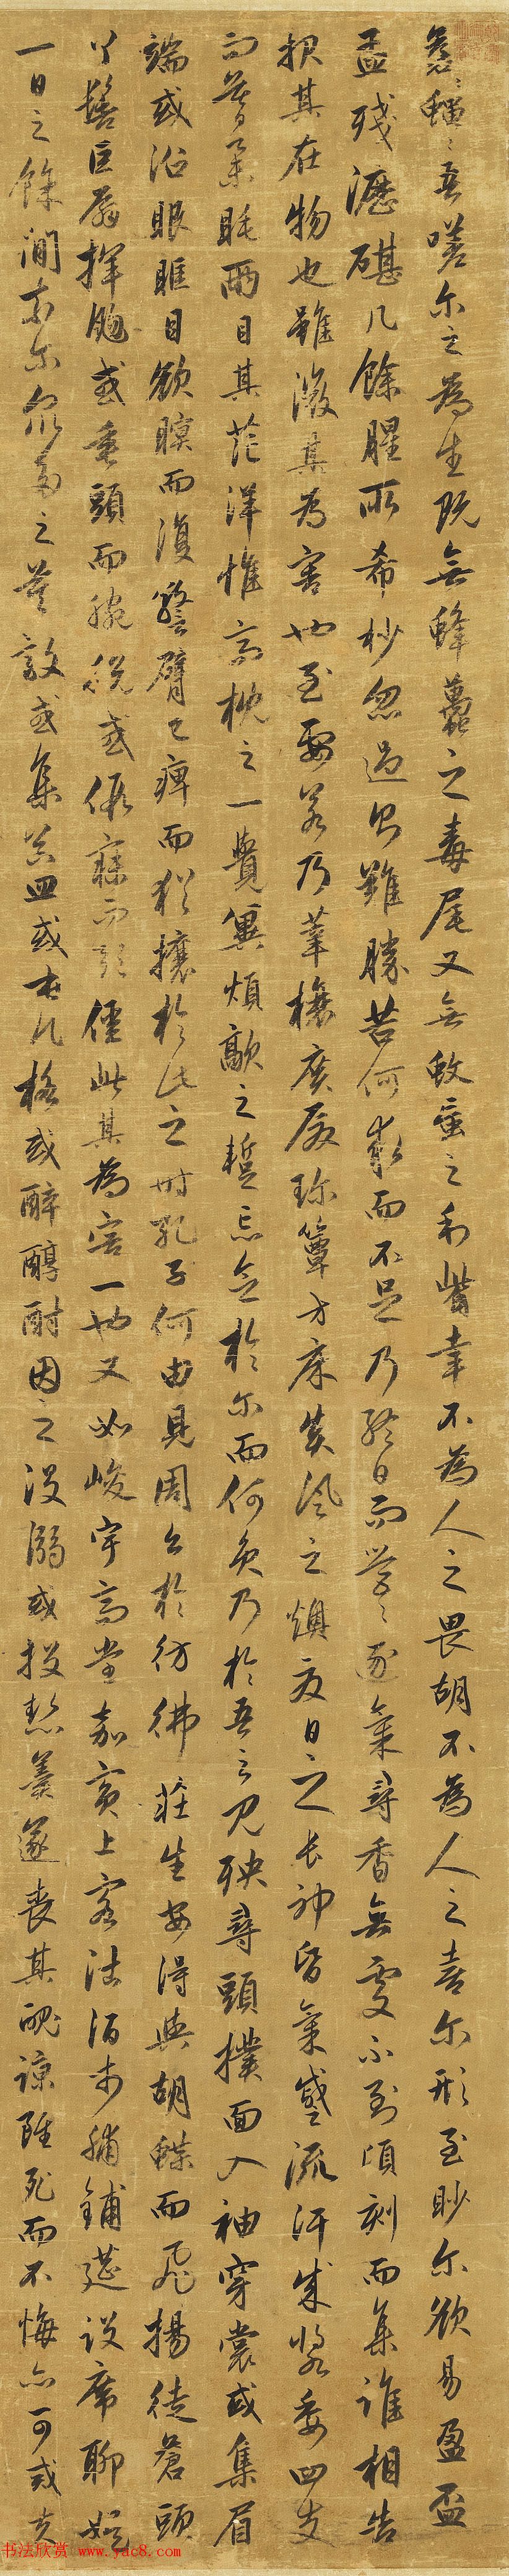 蒼〻蠅〻吾嗟尔之為生既無蜂蠆之毒尾又無蚊䖟之利觜幸不為人之畏胡不為人之喜尔形至眇尔欲易盈盃
盂殘瀝碪几餘腥所希杪忽過則難勝苦何求而不足乃終日而營〻逐氣尋香無處不到頃刻而集誰相告
報其在物也雖微其為害也至要若乃華榱廣廈珍簟方床炎風之燠夏日之長神昏氣蹙流汗成漿委四支
而莫舉眊兩目其茫洋惟高枕之一覺冀煩歊之蹔忘念於尔而何負乃於吾之見殃尋頭撲面入袖穿裳或集眉
端或沿眼眶目欲瞑而復警臂已痺而猶攘於此之時孔子何由見周公於彷彿莊生安得與胡蝶而飛揚徒蒼頭
丫髻巨扇揮颺或垂頭而腕脫或假寐而顛僵此其為害一也又如峻宇高堂嘉賓上客沽酒市脯鋪筵設席聊娛
一日之餘閒奈尔眾多之莫敵或集器皿或屯几格或醉醇酎因之沒溺或投熱羹遂喪其魄諒雖死而不悔亦可戒夫
书法欣赏 www.yac8.com